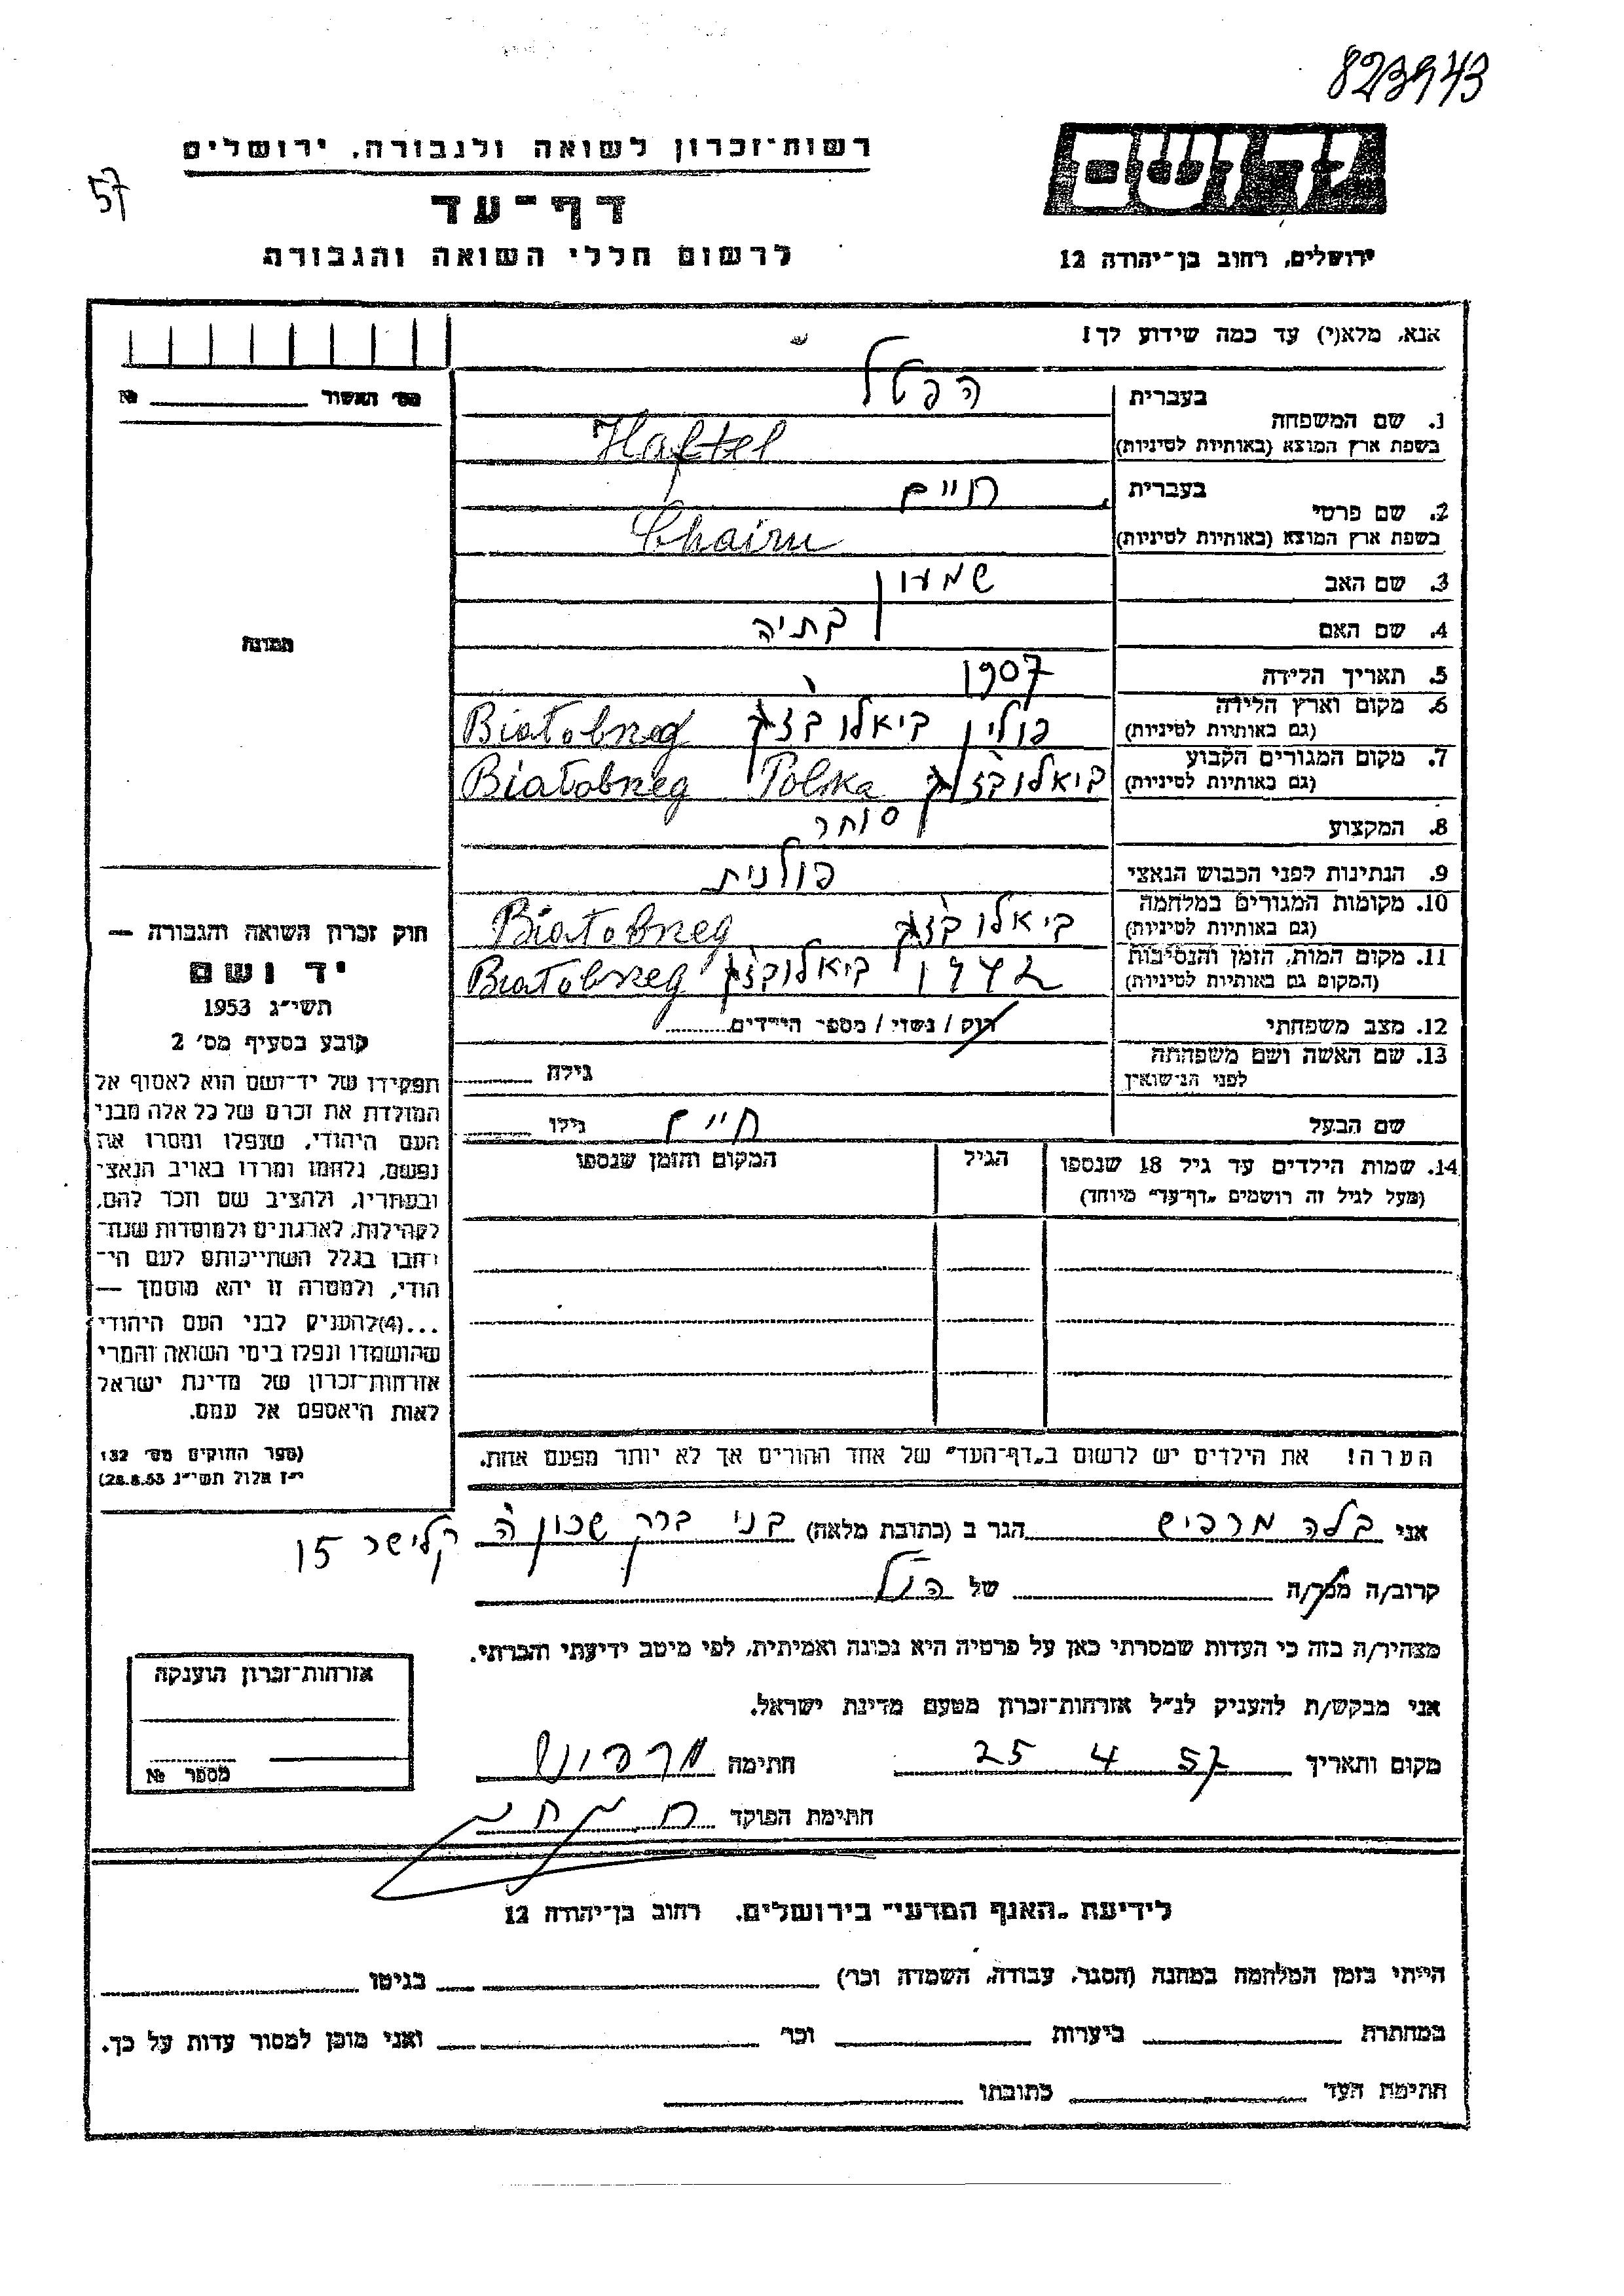 823943
רשות־זכרון לשואה ולגבורה, ירושלים
57
דף־עד
לרשום חללי השואה והגבורה
יד ושם
ירושלים, רחוב בן־יהודה 12
אנא, מלא(י) עד כמה שידוע לך!
מס׳ האשור № 
1. שם המשפחה בעברית הפטל
בשפת ארץ המוצא (באותיות לטיניות) Haftel
2. שם פרטי בעברית חיים
בשפת ארץ המוצא (באותיות לטיניות) Chaim
3. שם האב שמעון
4. שם האם בתיה
תמונה
5. תאריך הלידה 1907
6. מקום וארץ הלידה (גם באותיות לטיניות) פולין ביאלובז'ג Biatobrzeg
7. מקום המגורים הקבוע (גם באותיות לטיניות) ביאלובז'ג Polska Białobrzeg
8. המקצוע סוחר
9. הנתינות לפני הכבוש הנאצי פולנית
10. מקומות המגורים במלחמה (גם באותיות לטיניות) ביאלובז'ג Biatobrzeg
11. מקום המות, הזמן והנסיבות (המקום גם באותיות לטיניות) 1942 ביאלובז'ג Biatobrzeg
12. מצב משפחתי רוק / נשוי / מספר הילדים
13. שם האשה ושם משפחתה לפני הנישואין גילה
שם הבעל חיים גילו
14. שמות הילדים עד גיל 18 שנספו הגיל המקום והזמן שנספו
(מעל לגיל זה רושמים „דף־עד״ מיוחד)
חוק זכרון השואה והגבורה —
יד ושם
תשי״ג 1953
קובע בסעיף מס׳ 2
תפקידו של יד־ושם הוא לאסוף אל
המולדת את זכרם של כל אלה מבני
העם היהודי, שנפלו ומסרו את
נפשם, נלחמו ומרדו באויב הנאצי
ובעוזריו, ולהציב שם וזכר להם,
לקהילות, לארגונים ולמוסדות שנח־
רבו בגלל השתייכותם לעם הי־
הודי, ולמטרה זו יהא מוסמך —
...(4)להעניק לבני העם היהודי
שהושמדו ונפלו בימי השואה והמרי
אזרחות־זכרון של מדינת ישראל
לאות היאספם אל עמם.
(ספר החוקים מס׳ 132
י״ז אלול תשי״ג 28.8.53)
הערה! את הילדים יש לרשום ב„דף־העד״ של אחד ההורים אך לא יותר מפעם אחת.
אני בלה מרפיש הגר ב (כתובת מלאה) בני ברק שכון ה' קלישר 15
קרוב/ה מכר/ה של הנ"ל
מצהיר/ה בזה כי העדות שמסרתי כאן על פרטיה היא נכונה ואמיתית, לפי מיטב ידיעתי והכרתי.
אני מבקש/ת להעניק לנ״ל אזרחות־זכרון מטעם מדינת ישראל.
מקום ותאריך 25 4 57 חתימה
חתימת הפוקד
אזרחות־זכרון הוענקה
מספר №
לידיעת „האגף המדעי״ בירושלים. רחוב בן־יהודה 12
הייתי בזמן המלחמה במחנה (הסגר, עבודה, השמדה וכו׳) בגיטו
במחתרת ביערות וכו׳ ואני מוכן למסור עדות על כך.
חתימת העד כתובתו